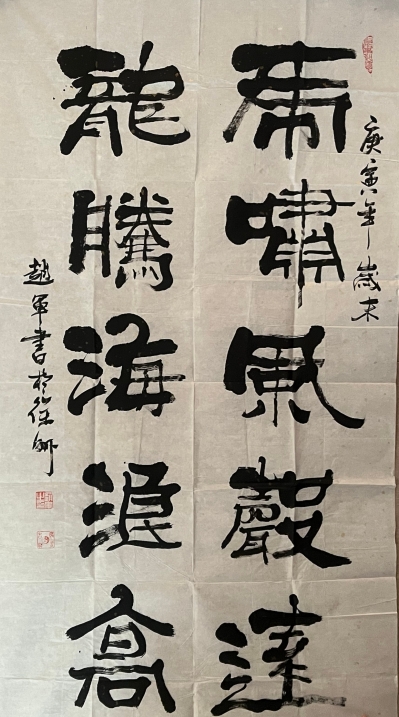 庚寅年歲末
虎嘯風聲遠
龍騰海浪高
趙軍書於